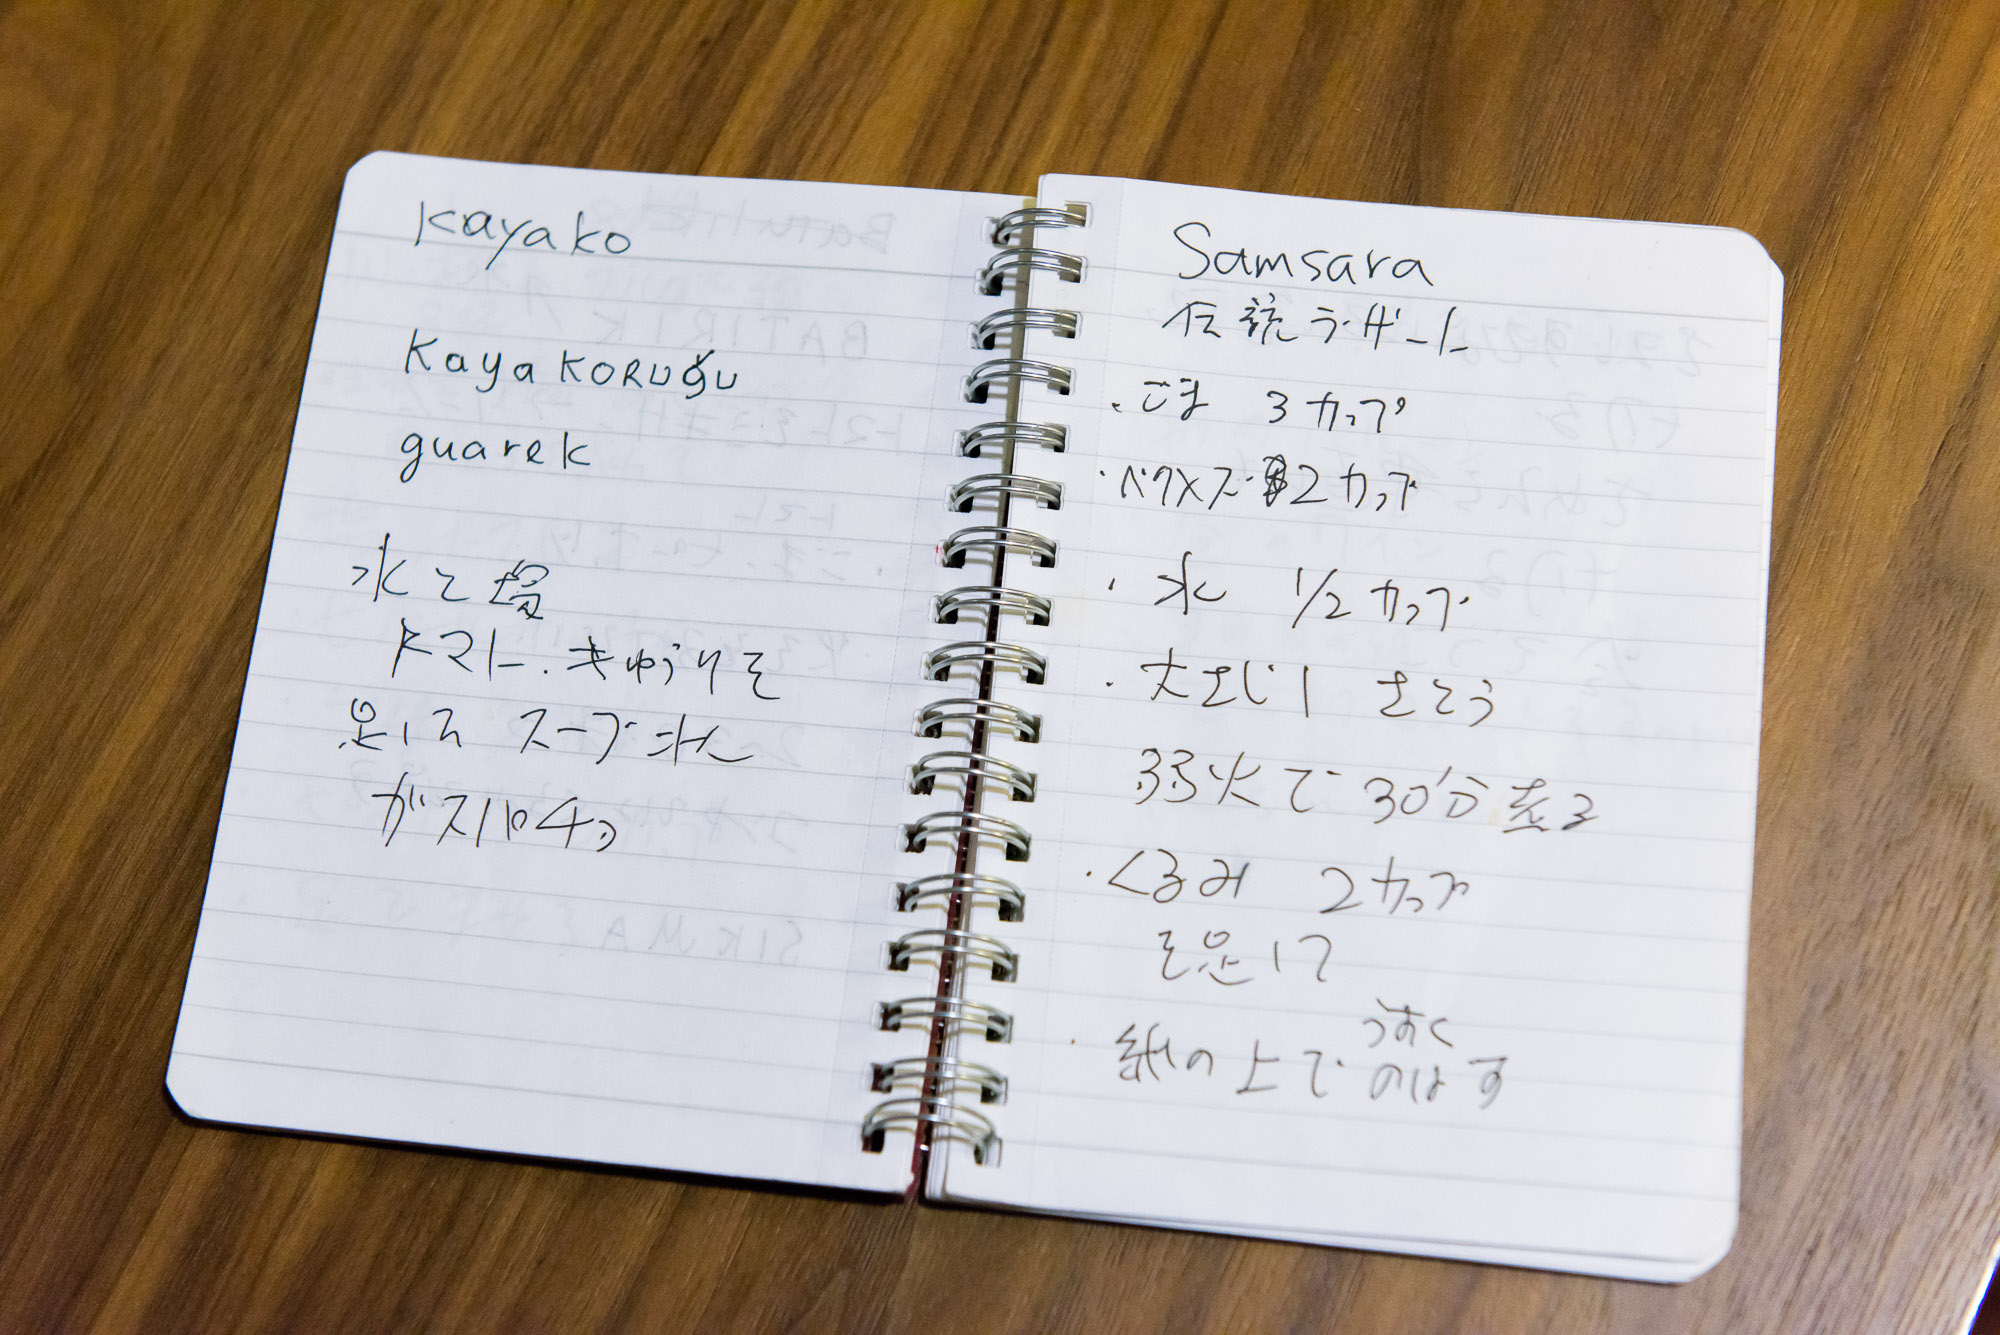 Kayako
Kaya KORUĞU
guarek
水と塩
トマト.きゅうりを
足して スープ
ガスパチョ
Samsara
伝統デザート
・ごま 3カップ
・ペクメズ 2カップ
・水 1/2カップ
・大さじ1 さとう
弱火で30分煮る
・くるみ 2カップ
を足して
うすく
・紙の上で のばす